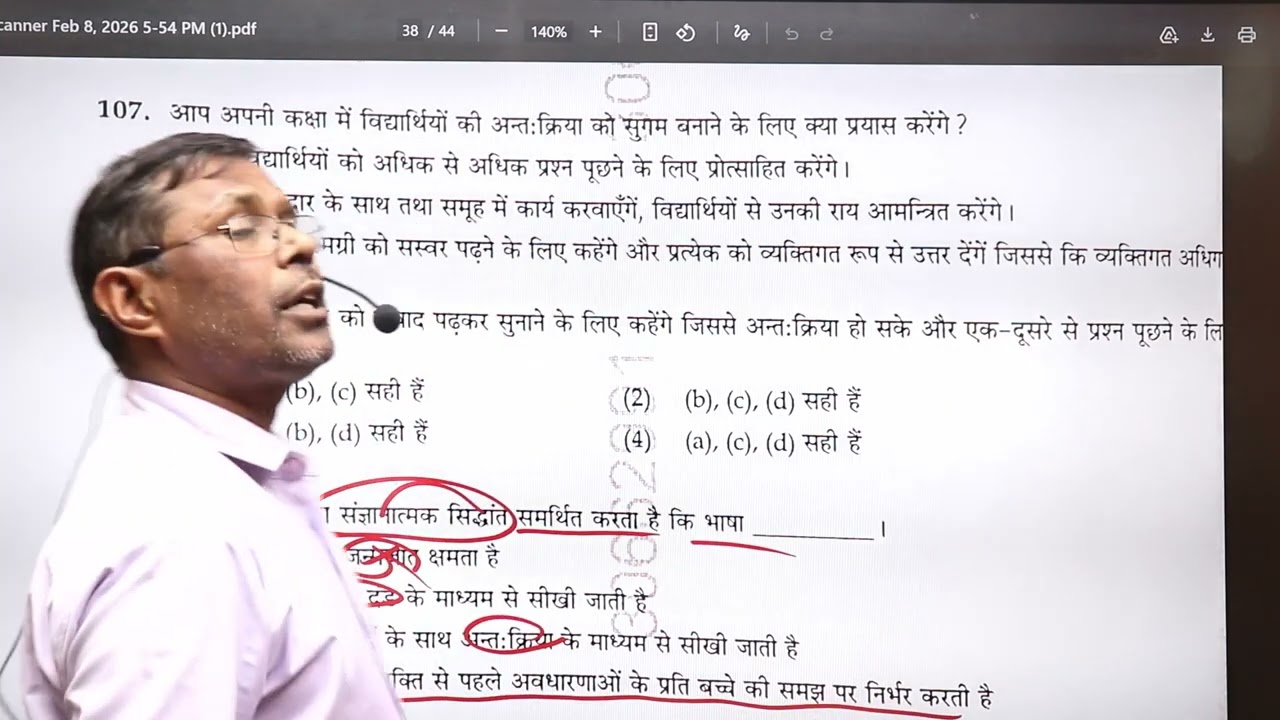 canner Feb 8, 2026 5-54 PM (1).pdf
38 / 44
140%
107. आप अपनी कक्षा में विद्यार्थियों की अन्त:क्रिया को सुगम बनाने के लिए क्या प्रयास करेंगे ?
को अधिक से अधिक प्रश्न पूछने के लिए प्रोत्साहित करेंगे।
के साथ तथा समूह में कार्य करवाएँगें, विद्यार्थियों से उनकी राय आमन्त्रित करेंगे।
को सस्वर पढ़ने के लिए कहेंगे और प्रत्येक को व्यक्तिगत रूप से उत्तर देंगें जिससे कि व्यक्तिगत
को पढ़कर सुनाने के लिए कहेंगे जिससे अन्त:क्रिया हो सके और एक-दूसरे से प्रश्न पूछने के
(b), (c) सही हैं (2) (b), (c), (d) सही हैं
(b), (d) सही हैं (4) (a), (c), (d) सही हैं
संज्ञानात्मक सिद्धांत समर्थित करता है कि भाषा __________ ।
क्षमता है
के माध्यम से सीखी जाती है
के साथ अन्त:क्रिया के माध्यम से सीखी जाती है
से पहले अवधारणाओं के प्रति बच्चे की समझ पर निर्भर करती है